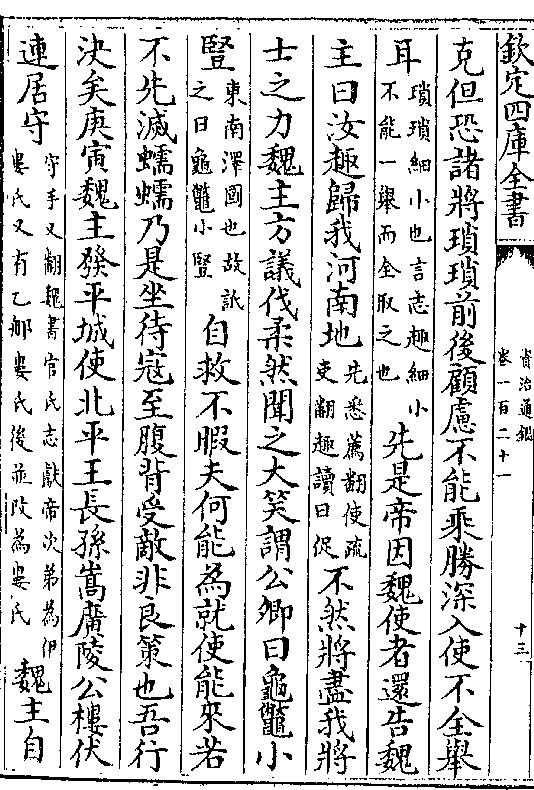 欽定四庫全書
資治通鑑
卷一百二十一
十三
克但恐諸將瑣瑣前後顧慮不能乘勝深入使不全舉
耳瑣瑣細小也言志趣細小不能一舉而全取之也先是帝因魏使者還告魏
主曰汝趣歸我河南地先悉薦翻使疏吏翻趣讀曰促不然將盡我將
士之力魏主方議伐柔然聞之大笑謂公卿曰龜鼈小
豎東南澤國也故詆之曰龜鼈小豎自救不暇夫何能為就使能來若
不先滅蠕蠕乃是坐待寇至腹背受敵非良策也吾行
決矣庚寅魏主發平城使北平王長孫嵩廣陵公樓伏
連居守守手又翻魏書官氏志獻帝次弟為伊婁氏又有乙郍婁氏後並改為婁氏魏主自